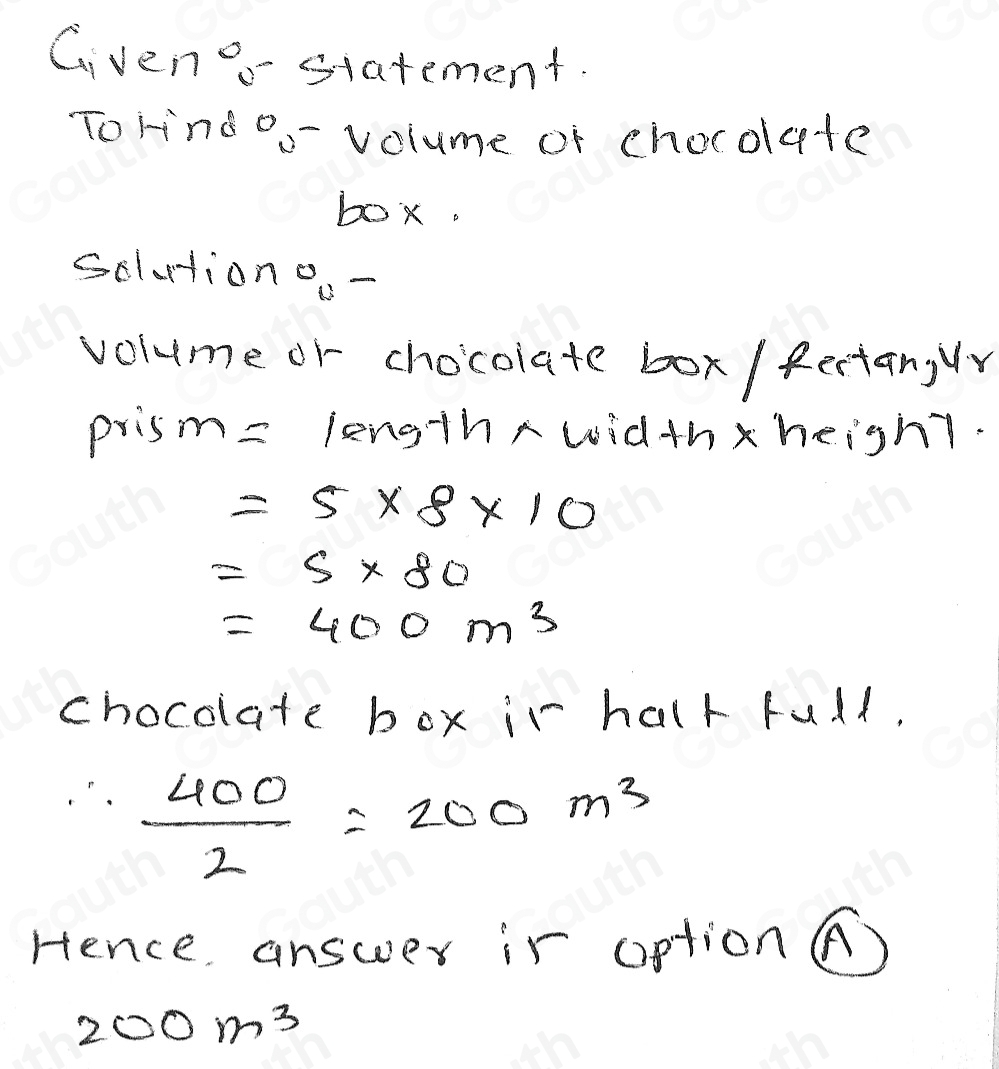 Given :- statement.
To find :- volume of chocolate
box.
Solution :-
volume of chocolate box / Rectangulr
prism = length × width × height.
= 5 × 8 × 10
= 5 × 80
= 400 m³
chocolate box is half full.
∴ 400/2 = 200 m³
Hence. answer is option Ⓐ
200 m³